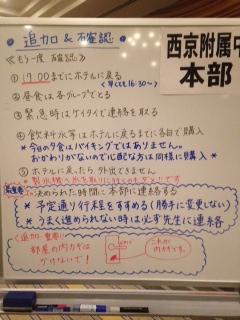 ・追加&確認・
西京附属中
本部
≪もう一度 確認≫
① 17:00までにホテルに戻る
<早くても16:30~>
② 昼食は各グループでとる
③ 緊急時はケイタイで連絡を取る
④ 飲料水等はホテルに戻るまでに各自で購入
*今日の夕食はバイキングではありません。
おかわりがないので心配な方は同様に購入*
⑤ ホテルに戻ったら、外出できません
*製氷機の氷を取りに行くのもダメです
最重要
決められた時間に本部に連絡する
*予定通り行程をすすめる(勝手に変更しない)
*うまく進められない時は必ず先生に連絡
<追加・重要!>
部屋の内カギは
かけないで!
これが
内カギです。